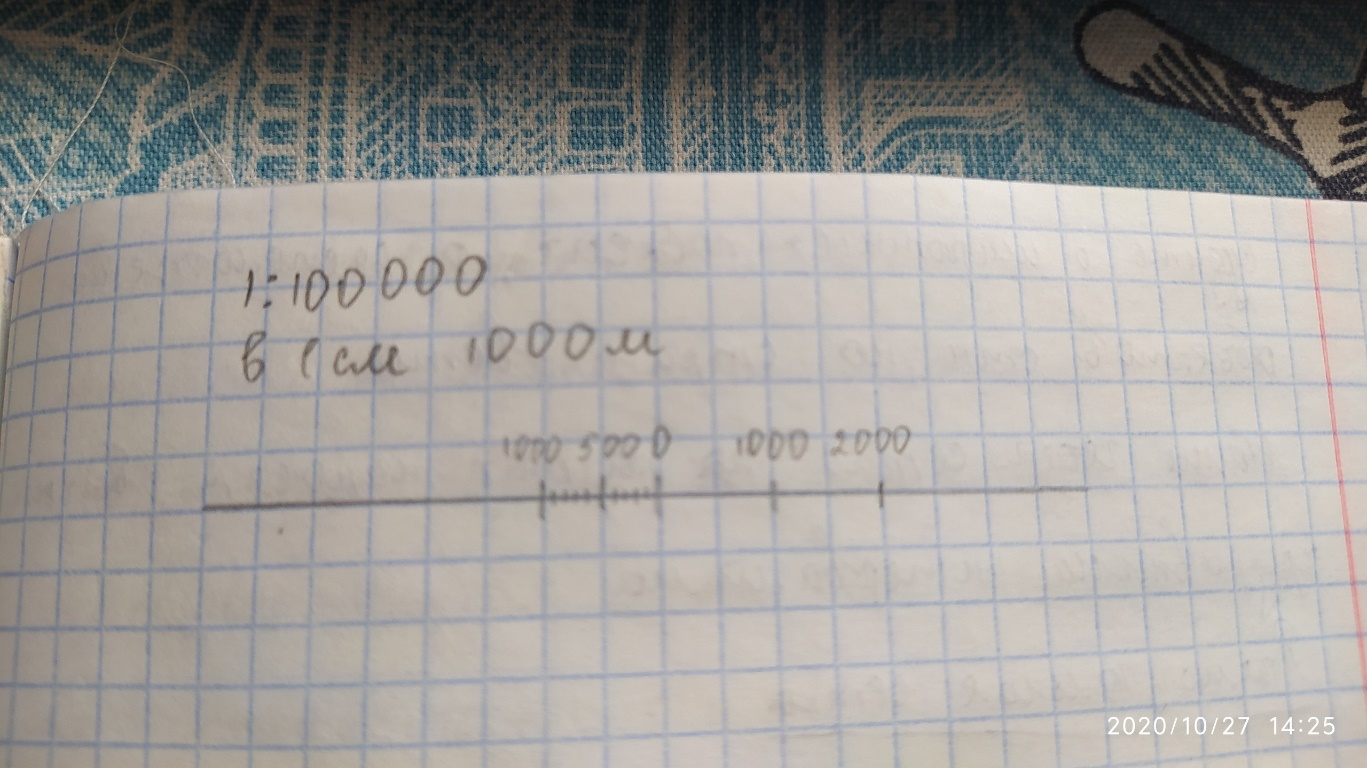 1:100000
в 1 см 1000 м
1000 5000 0 1000 2000
2020/10/27 14:25